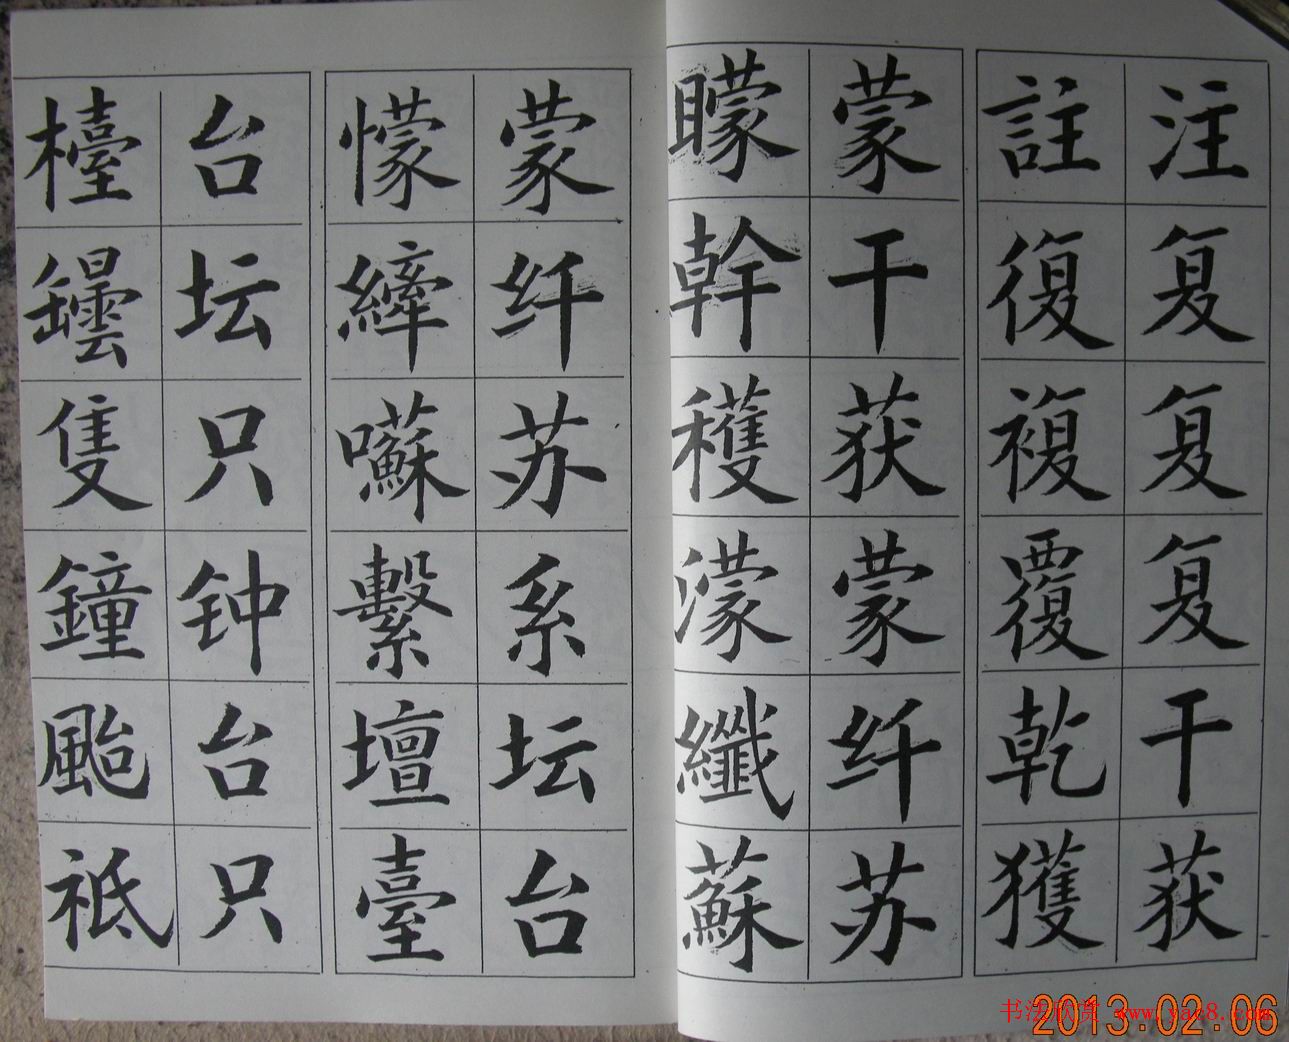 注复复复干获
註復複覆乾獲
蒙干获蒙纤苏
矇幹穫濛纖蘇
蒙纤苏系坛台
懞縴囌繫壇臺
台坛只钟台只
檯罎隻鐘颱祗
书法欣赏 www.yac8.com
2013.02.06